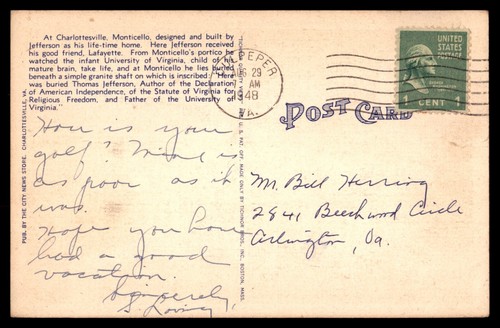 At Charlottesville, Monticello, designed and built by
Jefferson as his life-time home. Here Jefferson received
his good friend, Lafayette. From Monticello's portico he
watched the infant University of Virginia, child of his
mature brain, take life, and at Monticello he lies buried
beneath a simple granite shaft on which is inscribed: "Here
was buried Thomas Jefferson, Author of the Declaration
of American Independence, of the Statute of Virginia for
Religious Freedom, and Father of the University of
Virginia."
How is your
golf? Mine is
as poor as it
was.
Hope you have
had a good
vacation.
Sincerely,
PUB. BY THE CITY NEWS STORE, CHARLOTTESVILLE, VA.
REG. U. S. PAT. OFF. MADE ONLY BY TICHNOR BROS., INC., BOSTON, MASS.
CULPEPER
AUG 29
AM
1948
VA.
UNITED
STATES
POSTAGE
1 CENT 1
POST CARD
Mr. Bill Herring
2841 Beechwood Circle
Arlington, Va.